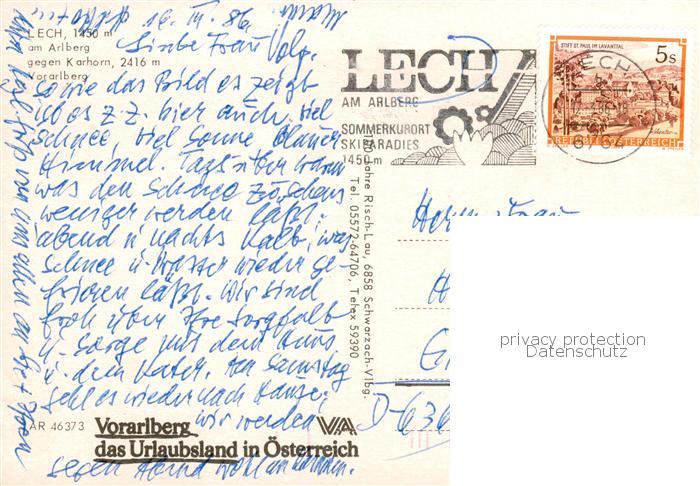 LECH, 1450 m
am Arlberg
gegen Karhorn, 2416 m
Vorarlberg
16. III. 86
Liebe Frau
so wie das Bild es zeigt
ist es z.Z. hier auch. viel
Schnee, viel Sonne blauer
Himmel. Tags über warm
was den Schnee zusehens
weniger werden läßt.
abend u nachts kalt, was
Schnee u. Wasser wieder ge-
frieren läßt. Wir sind
froh über Ihre Sorgfalt
u. Sorge mit dem Haus
u. dem Kater. Am Samstag
geht es wieder nach Hause,
wir werden
gegen Abend wohl ankommen.
AR 46373
Vorarlberg
das Urlaubsland in Österreich
VA
Risch-Lau, 6858 Schwarzach-Vlbg.
Tel. 05572-64706, Telex 59390
LECH
AM ARLBERG
SOMMERKURORT
SKIPARADIES
1450 m
STIFT ST. PAUL IM LAVANTTAL
5 s
REPUBLIK ÖSTERREICH
LECH
Herrn Frau
H
G
D-636
privacy protection
Datenschutz